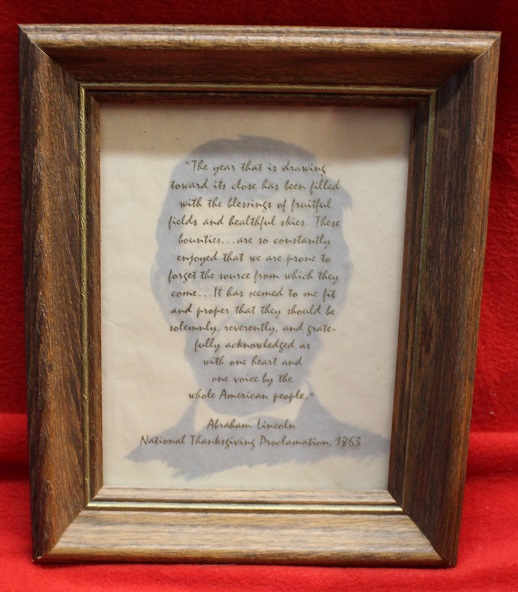 "The year that is drawing
toward its close has been filled
with the blessings of fruitful
fields and healthful skies. These
bounties...are so constantly
enjoyed that we are prone to
forget the source from which they
come...It has seemed to me fit
and proper that they should be
solemnly, reverently, and grate-
fully acknowledged as
with one heart and
one voice by the
whole American people."
Abraham Lincoln
National Thanksgiving Proclamation, 1863